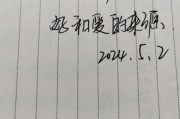 和爱的来源.
2024.5.2